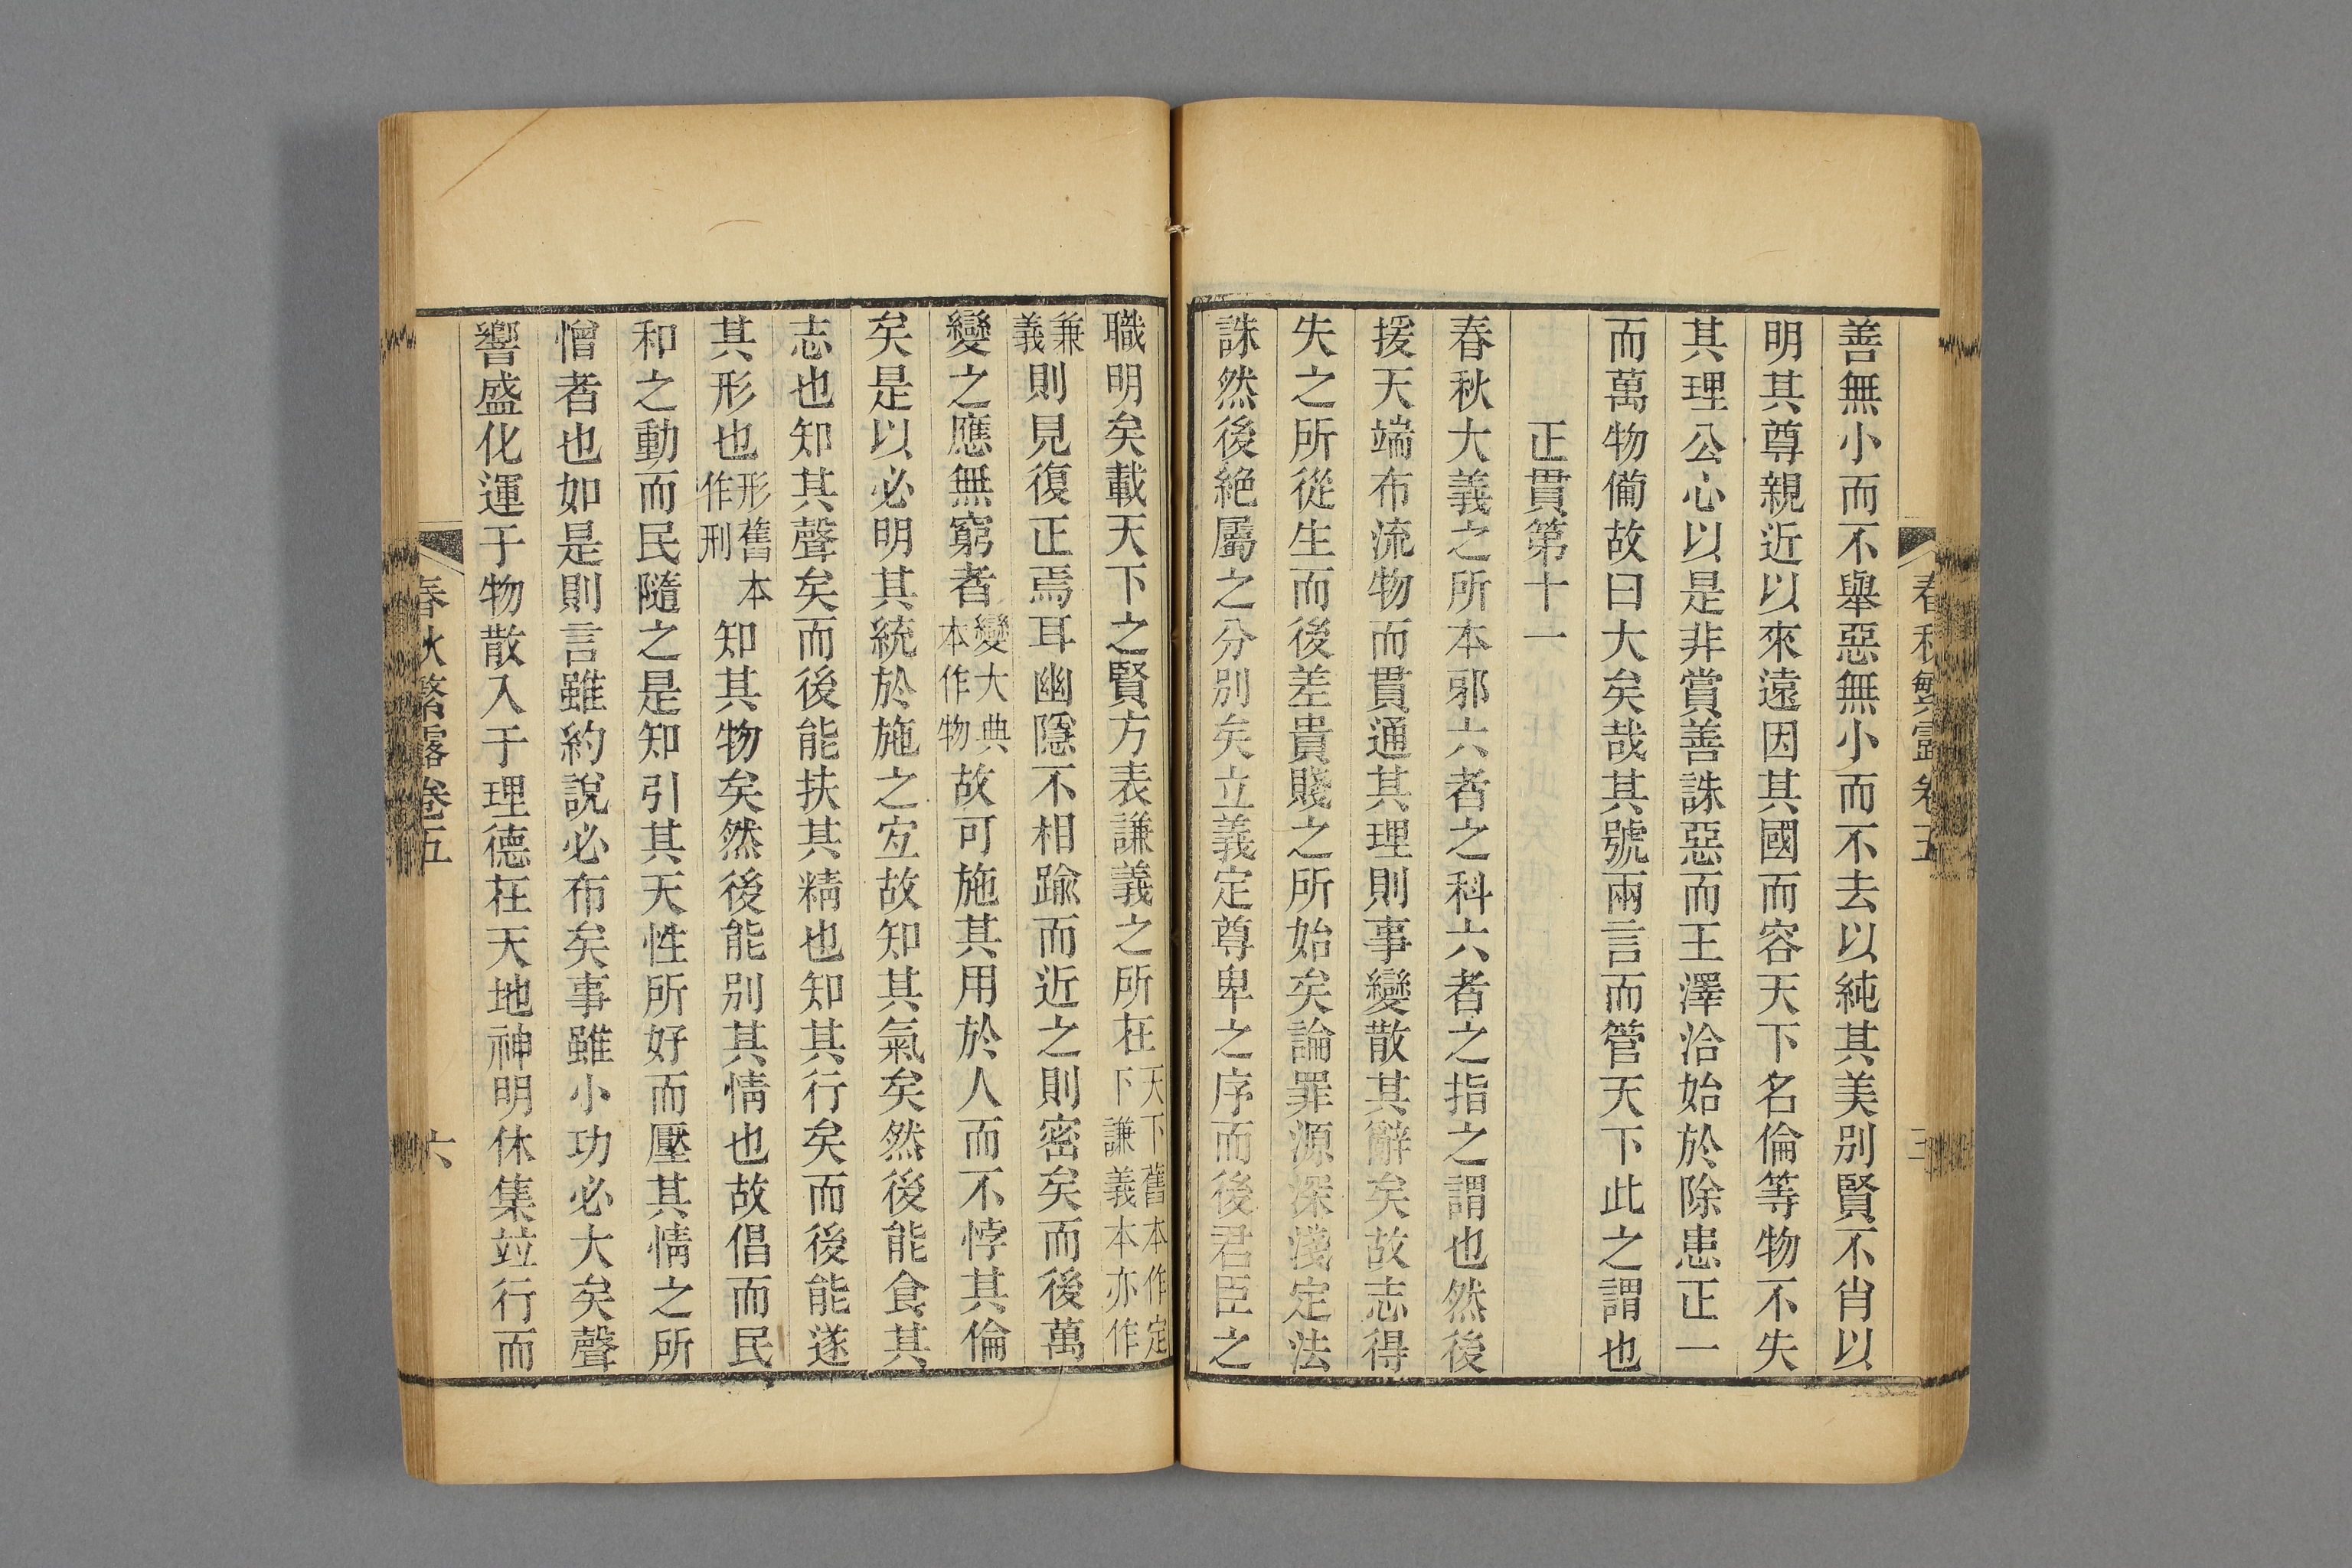 春秋繁露卷五
善無小而不舉惡無小而不去以純其美別賢不肖以
明其尊親近以來遠因其國而容天下名倫等物不失
其理公心以是非賞善誅惡而王澤洽始於除患正一
而萬物備故曰大矣哉其號兩言而管天下此之謂也
正貫第十一
春秋大義之所本郭六者之科六者之指之謂也然後
援天端布流物而貫通其理則事變散其辭矣故志得
失之所從生而後差貴賤之所始矣論罪源深淺定法
誅然後絕屬之分別矣立義定尊卑之序而後君臣之
職明矣載天下之賢方表謙義之所在天下舊本作定下謙義本亦作
兼義則見復正焉耳幽隱不相踰而近之則密矣而後萬
變之應無窮者變大典本作物故可施其用於人而不悖其倫
矣是以必明其統於施之宐故知其氣矣然後能食其
志也知其聲矣而後能扶其精也知其行矣而後能遂
其形也形舊本作刑知其物矣然後能別其情也故倡而民
和之動而民隨之是知引其天性所好而壓其情之所
憎者也如是則言雖約說必布矣事雖小功必大矣聲
響盛化運于物散入于理德在天地神明休集竝行而
春秋繁露卷五
六